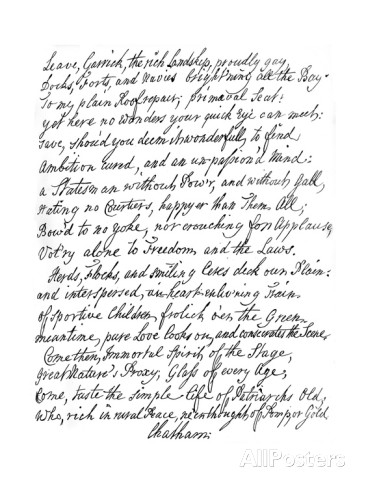 Leave, Garrick, the rich Landskip, proudly gay,
Docks, Forts, and Navies bright'ning all the Bay.
To my plain Roof repair, primæval Seat:
yet here no wonders your quick Eye can meet:
save, shou'd you deem it wonderfull, to find
Ambition cured, and an unpassion'd mind:
a Statesman without Pow'r, and without Gall,
Hating no Courtiers, happyer than Them All,
Bow'd to no yoke, nor crouching for Applause,
Vot'ry alone to Freedom and the Laws.
Herds, Flocks, and smiling Ceres deck our Plain:
and interspersed, an heart-enlivening Train
of sportive Children frolick o'er the Green,
meantime, pure Love looks on, and consecrates the Scene,
Come then, Immortal Spirit of the Stage,
Great Nature's Proxy, Glass of every Age,
Come, taste the simple life of Patriarchs Old,
Who, rich in rural Peace, ne'er thought of Pomp or Gold
Chatham.
AllPosters